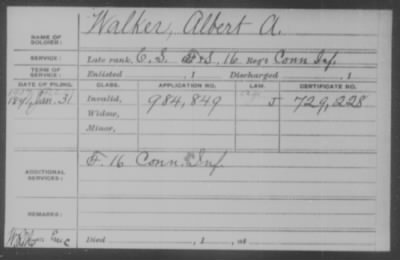 NAME OF SOLDIER: Walker, Albert A.
SERVICE: Late rank, C. S. F&S, 16 Reg't Conn Inf.
TERM OF SERVICE: Enlisted , 1 Discharged , 1
DATE OF FILING. CLASS. APPLICATION NO. LAW. CERTIFICATE NO.
Jan. 31 Invalid, 984,849 J 729,228
Widow,
Minor,
ADDITIONAL SERVICES: F. 16 Conn. Inf
REMARKS:
Died , 1 , at